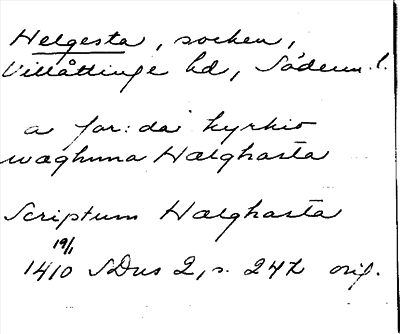 Helgesta, socken,
Villåttinge hd, Söderm. l.
a for:da kyrkio
wæghnna Hælghasta
Scriptum Hælghasta
19/1
1410 SDns 2, s. 247 orig.